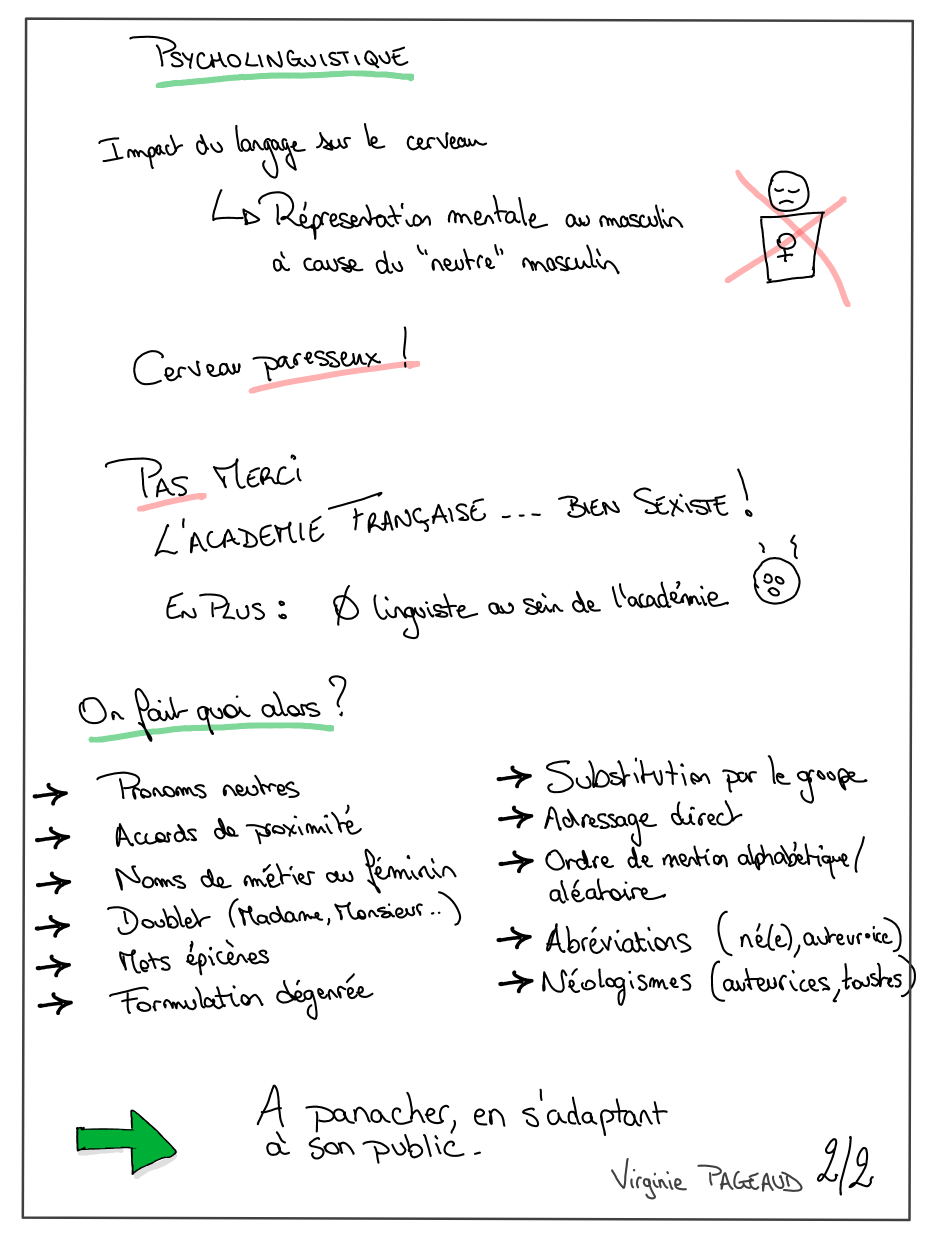 PSYCHOLINGUISTIQUE
Impact du langage sur le cerveau
Répresentation mentale au masculin
à cause du "neutre" masculin
Cerveau paresseux !
PAS MERCI
L'ACADEMIE FRANÇAISE ... BIEN SEXISTE !
EN PLUS : Ø linguiste au sein de l'académie
On fait quoi alors ?
→ Pronoms neutres
→ Accords de proximité
→ Noms de métier au féminin
→ Doublet (Madame, Monsieur..)
→ Mots épicènes
→ Formulation dégenrée
→ Substitution par le groupe
→ Adressage direct
→ Ordre de mention alphabétique/
aléatoire
→ Abréviations (né(e), auteur•ice)
→ Néologismes (auteurices, toustes)
A panacher, en s'adaptant
à son public.
Virginie PAGEAUD 2/2